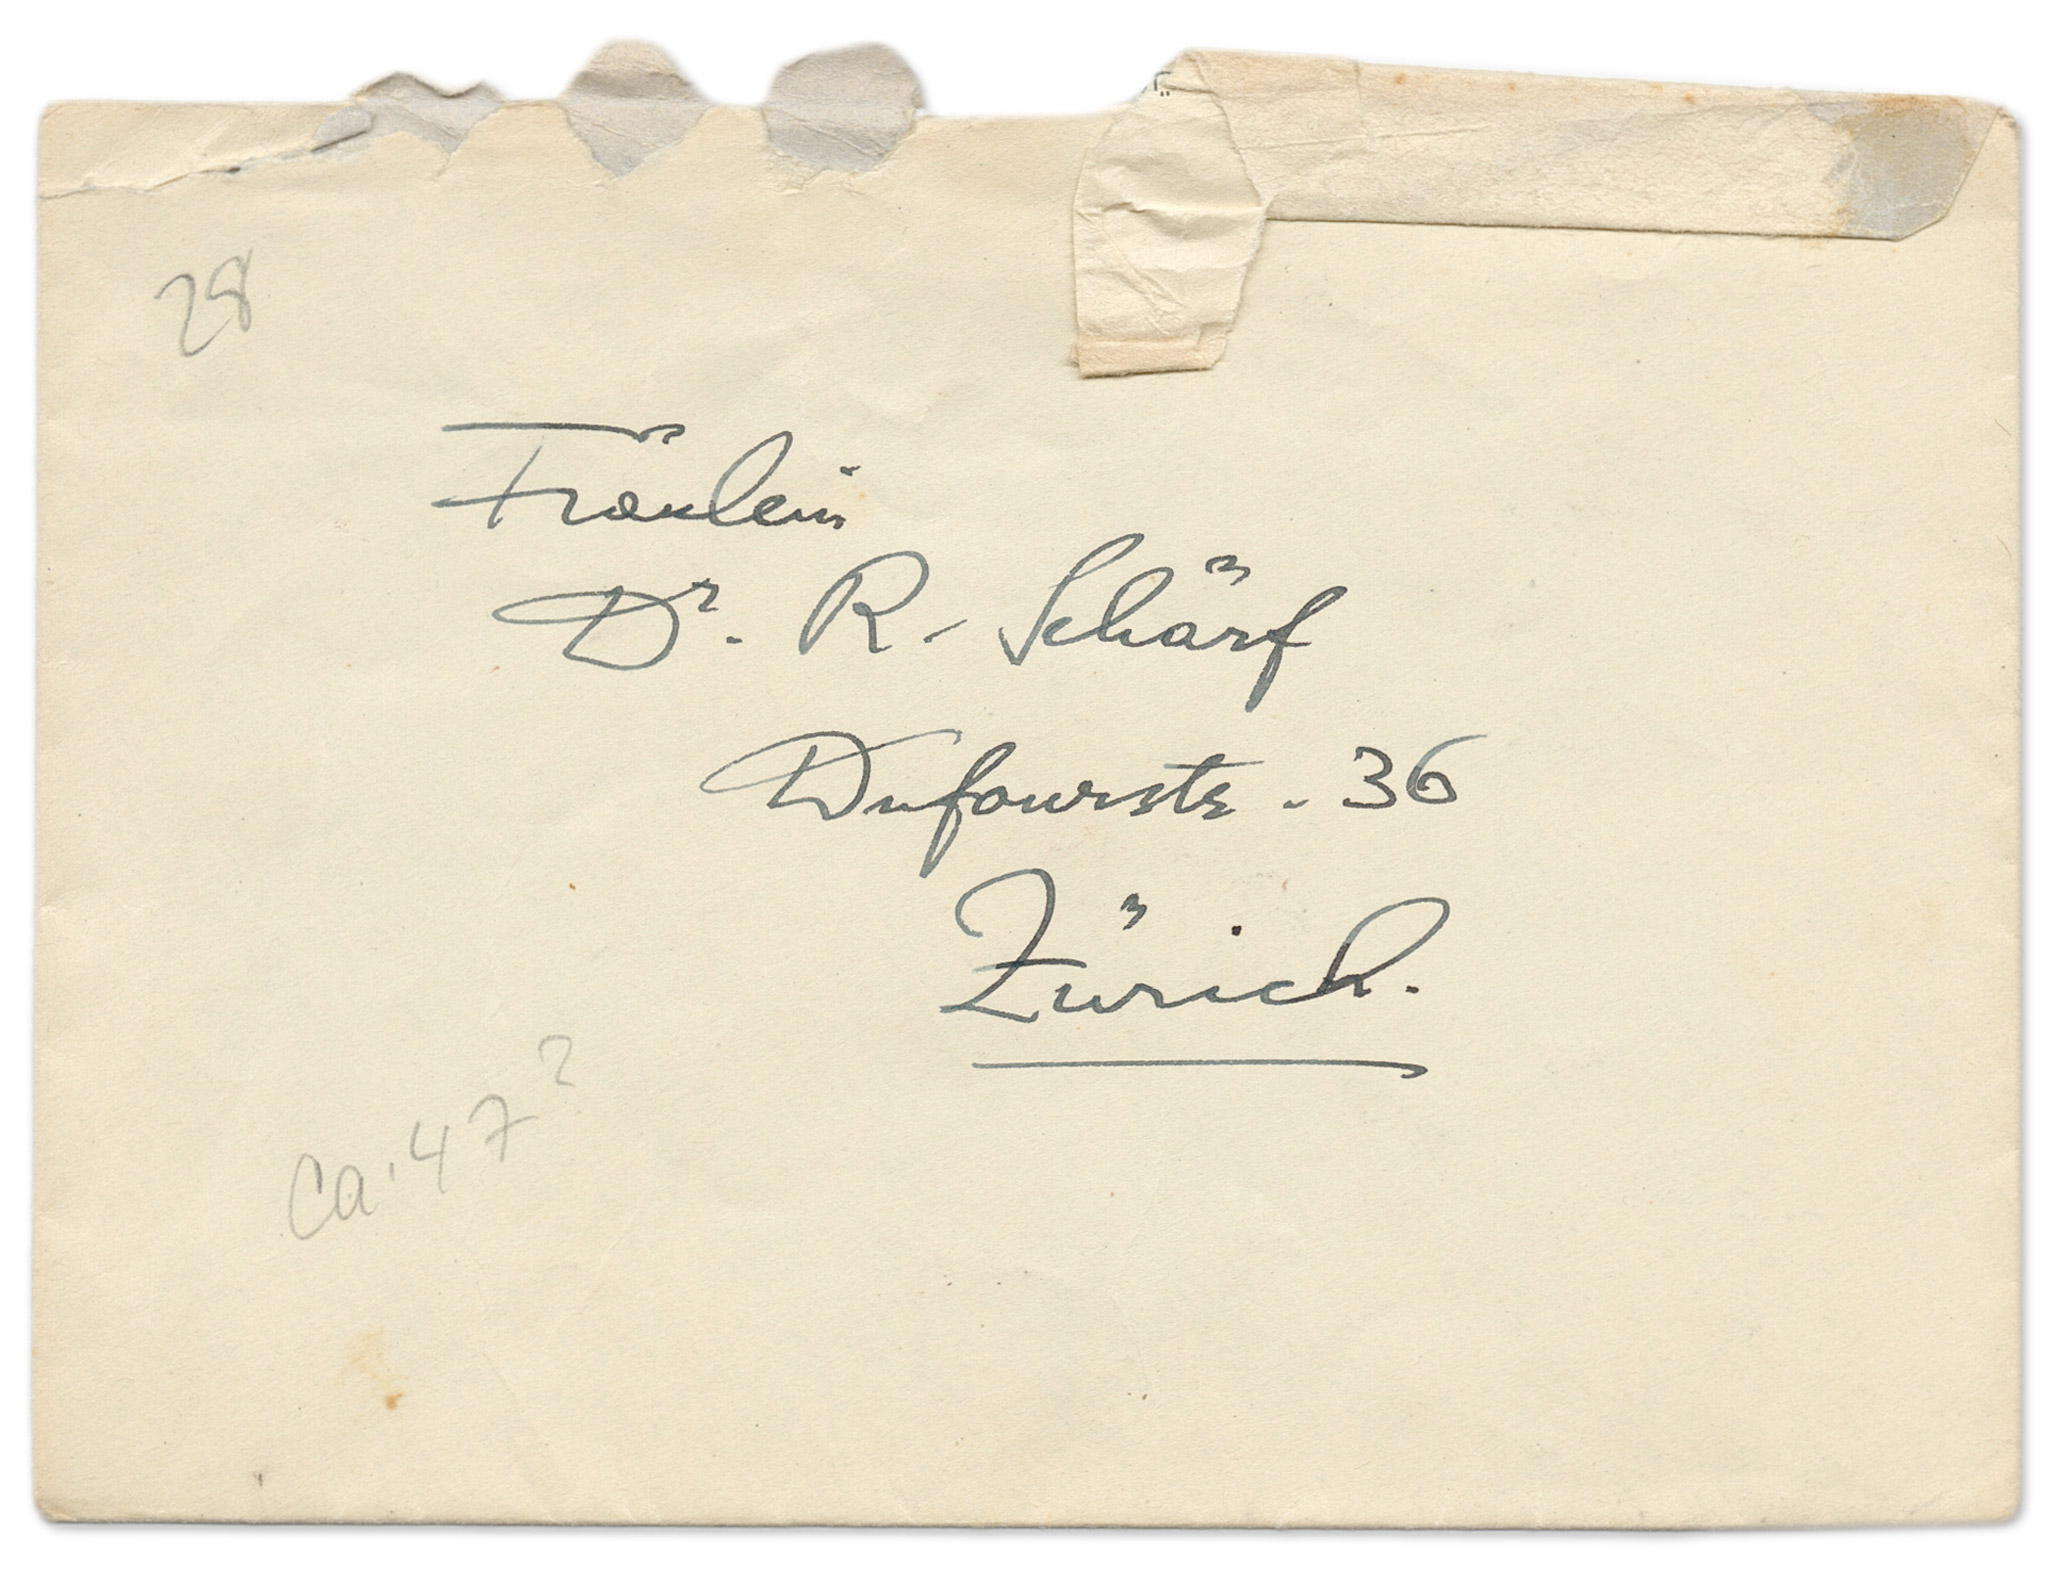 28
Fräulein
Dr. R. Schärf
Dufourstr. 36
Zürich.
ca. 47?